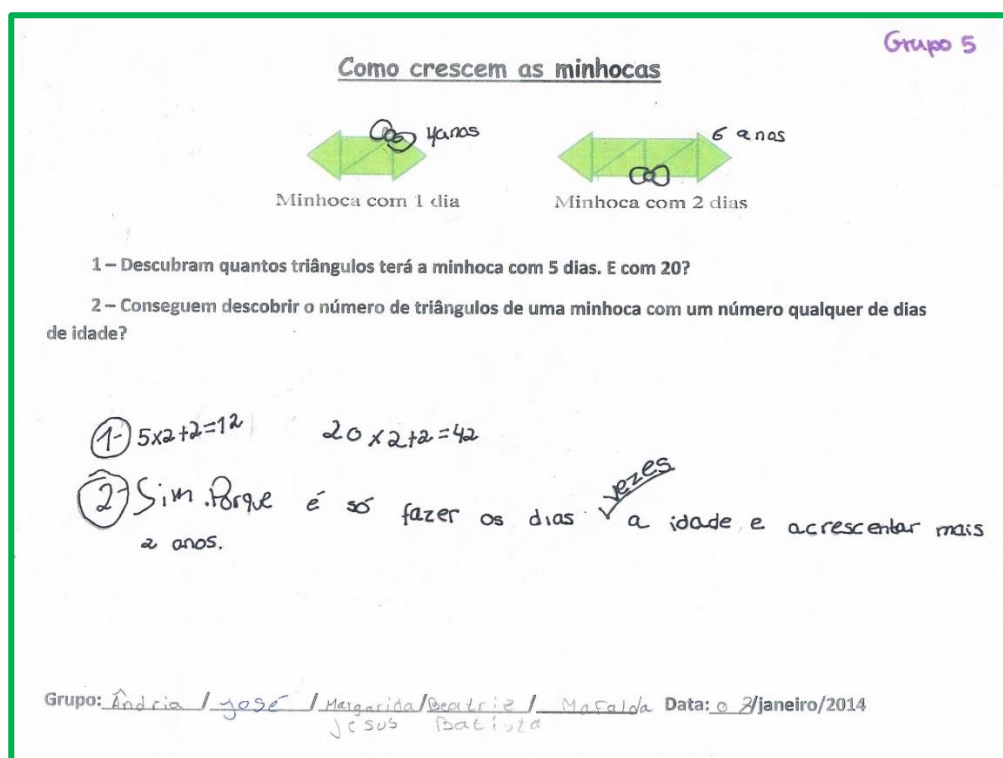 Grupo 5
Como crescem as minhocas
4anos
6 anos
Minhoca com 1 dia
Minhoca com 2 dias
1 – Descubram quantos triângulos terá a minhoca com 5 dias. E com 20?
2 – Conseguem descobrir o número de triângulos de uma minhoca com um número qualquer de dias
de idade?
1- 5x2+2=12 20x2+2=42
2- Sim. Porque é só fazer os dias vezes a idade e acrescentar mais
2 anos.
Grupo: Ândria / José / Margarida/Beatriz / Mafalda Data: /janeiro/2014
Jesus Batista